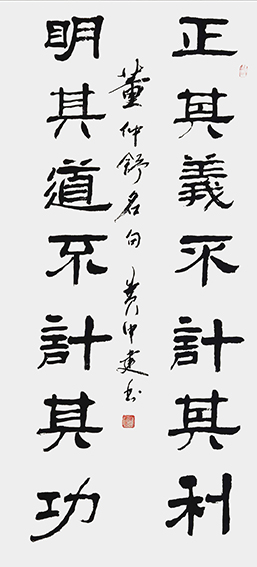 正其義不計其利
明其道不計其功
董仲舒名句 书